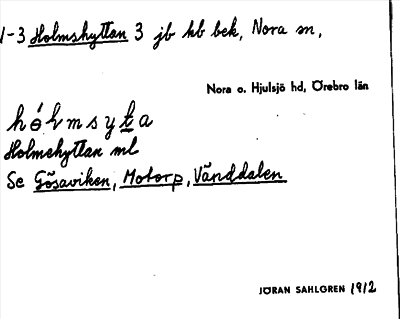 1-3 Holmshyttan 3 jb kb bek, Nora sn,
Nora o. Hjulsjö hd, Örebro län
Holmshyttan ml
Se Gösaviken, Motorp, Vänddalen
JÖRAN SAHLGREN 1912